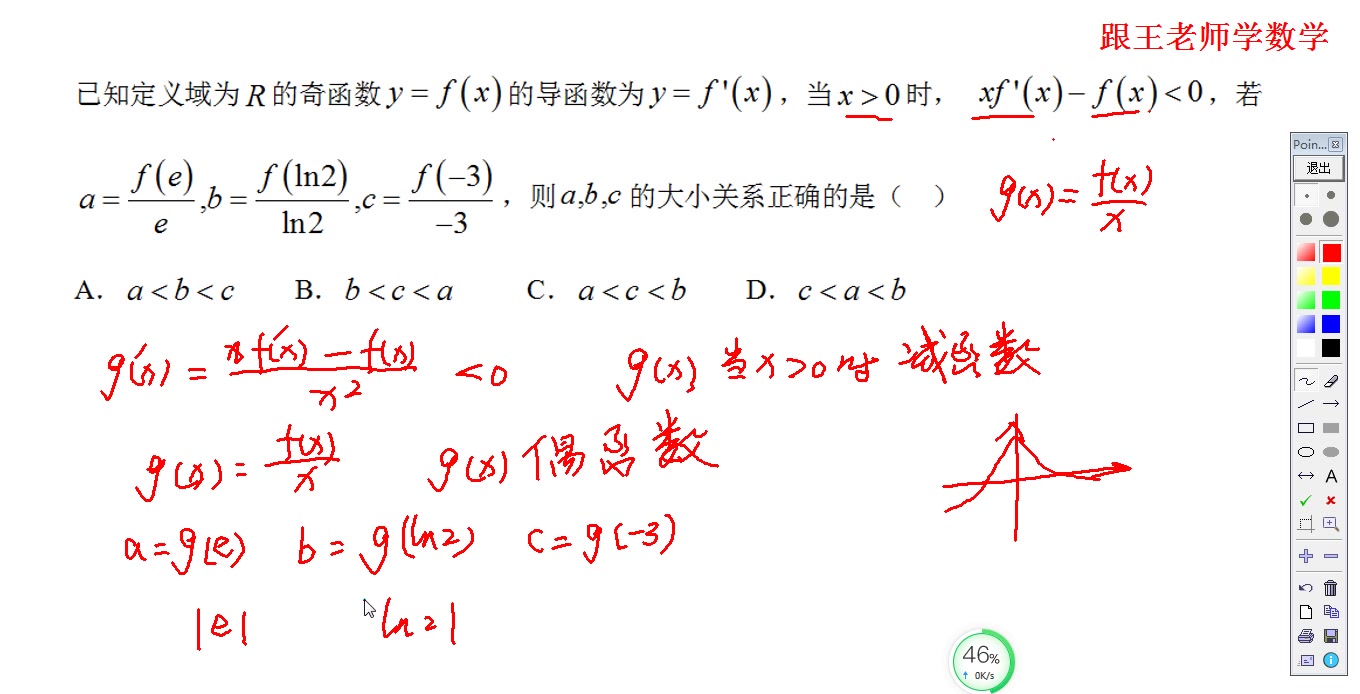 跟王老师学数学
已知定义域为 R 的奇函数 y = f(x) 的导函数为 y = f'(x)，当 x > 0 时， xf'(x) − f(x) < 0，若
a = f(e)/e , b = f(ln2)/ln2 , c = f(−3)/−3 ，则 a,b,c 的大小关系正确的是（ ）
g(x) = f(x)/x
A． a < b < c B． b < c < a C． a < c < b D． c < a < b
g'(x) = xf'(x) − f(x)/x² < 0 g(x) 当 x > 0 时 减函数
g(x) = f(x)/x g(x) 偶函数
a = g(e) b = g(ln2) c = g(-3)
|e| ln2|
Poin...
退出
A
46%
0K/s